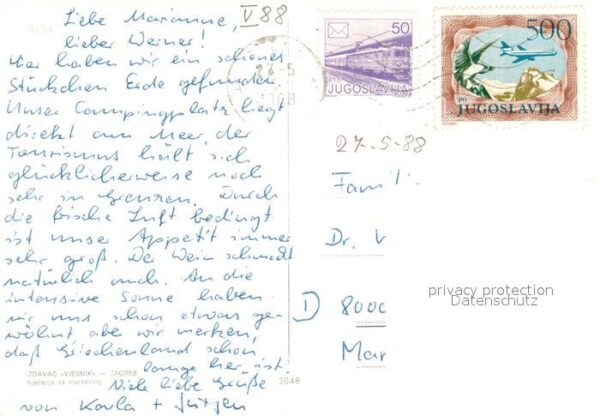 Liebe Marianne,
lieber Werner!
V 88
Hier haben wir ein schönes
Stückchen Erde gefunden.
Unser Campingplatz liegt
direkt am Meer, der
Tourismus hält sich
glücklicherweise noch
sehr in Grenzen. Durch
die frische Luft bedingt
ist unser Appetit immer
sehr groß. Der Wein schmeckt
natürlich auch. An die
intensive Sonne haben
wir uns schon etwas ge-
wöhnt aber wir merken,
daß Griechenland schon
lange her ist.
Viele liebe Grüße
von Karla + Jürgen
IZDAVAČ »VJESNIK« — ZAGREB
Agencija za marketing
3048
50
JUGOSLAVIJA
500
par
JUGOSLAVIJA
27-5-88
Famili
Dr. V
D 8000
Mar
privacy protection
Datenschutz